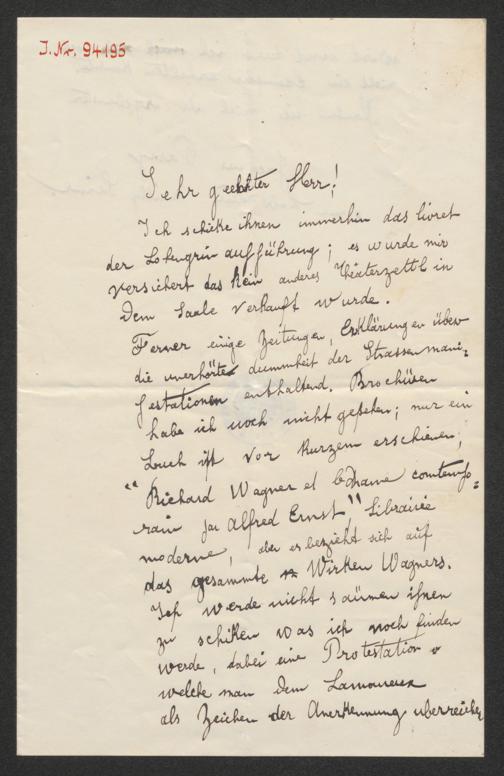 J.Nr. 94195
Sehr geehrter Herr!
Ich schicke ihnen immerhin das livret
der Lohengrin aufführung; es wurde mir
versichert das kein anderes Theaterzettel in
dem Saale verkauft wurde.
Ferner einige Zeitungen, Erklärungen über
die unerhörte dummheit der Strassenmani=
festationen enthaltend. Brochüren
habe ich noch nicht gesehen; nur ein
buch ist vor kurzem erschienen,
"Richard Wagner et le drame contempo=
rain par Alfred Ernst" Librairie
moderne, aber es bezieht sich auf
das gesammte Wirken Wagners.
Ich werde nicht säumen ihnen
zu schiken was ich noch finden
werde, dabei eine Protestation
welche man dem Lamoureux
als Zeichen der Anerkennung uberreichte